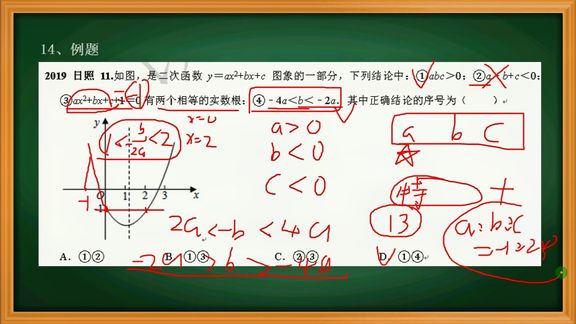 14、例题
2019 日照 11.如图，是二次函数 y=ax²+bx+c 图象的一部分，下列结论中：①abc>0；②a-b+c<0；
③ax²+bx+c+1=0有两个相等的实数根；④-4a<b<-2a. 其中正确结论的序号为（ ）
x=0
x=2
1<-b/2a<2
a>0
b<0
c<0
a b c
y
-1 O 1 2 3 x
-1
13
2a<-b<4a
-2a>b>-4a
A. ①② B. ①③ C. ②③ D. ①④